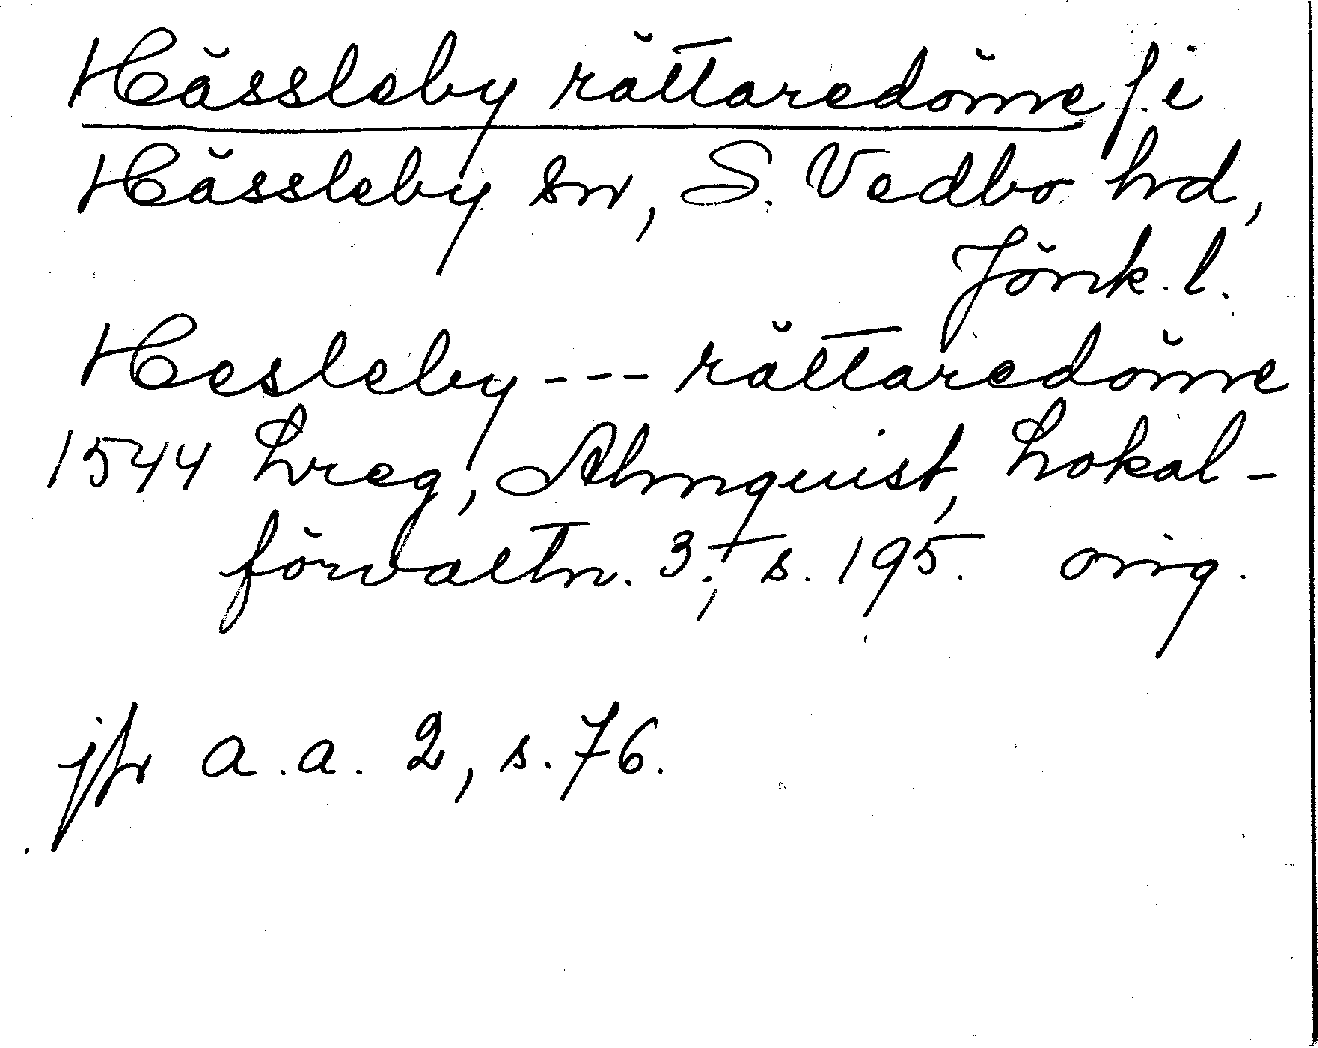 Hässleby rättaredöme f. i
Hässleby sn, S. Vedbo hd,
Jönk. l.
Hesleby --- rättaredöme
1544 Lreg, Almquist, Lokal-
förvaltn. 3:, s. 195. orig.
jfr a.a. 2, s. 76.